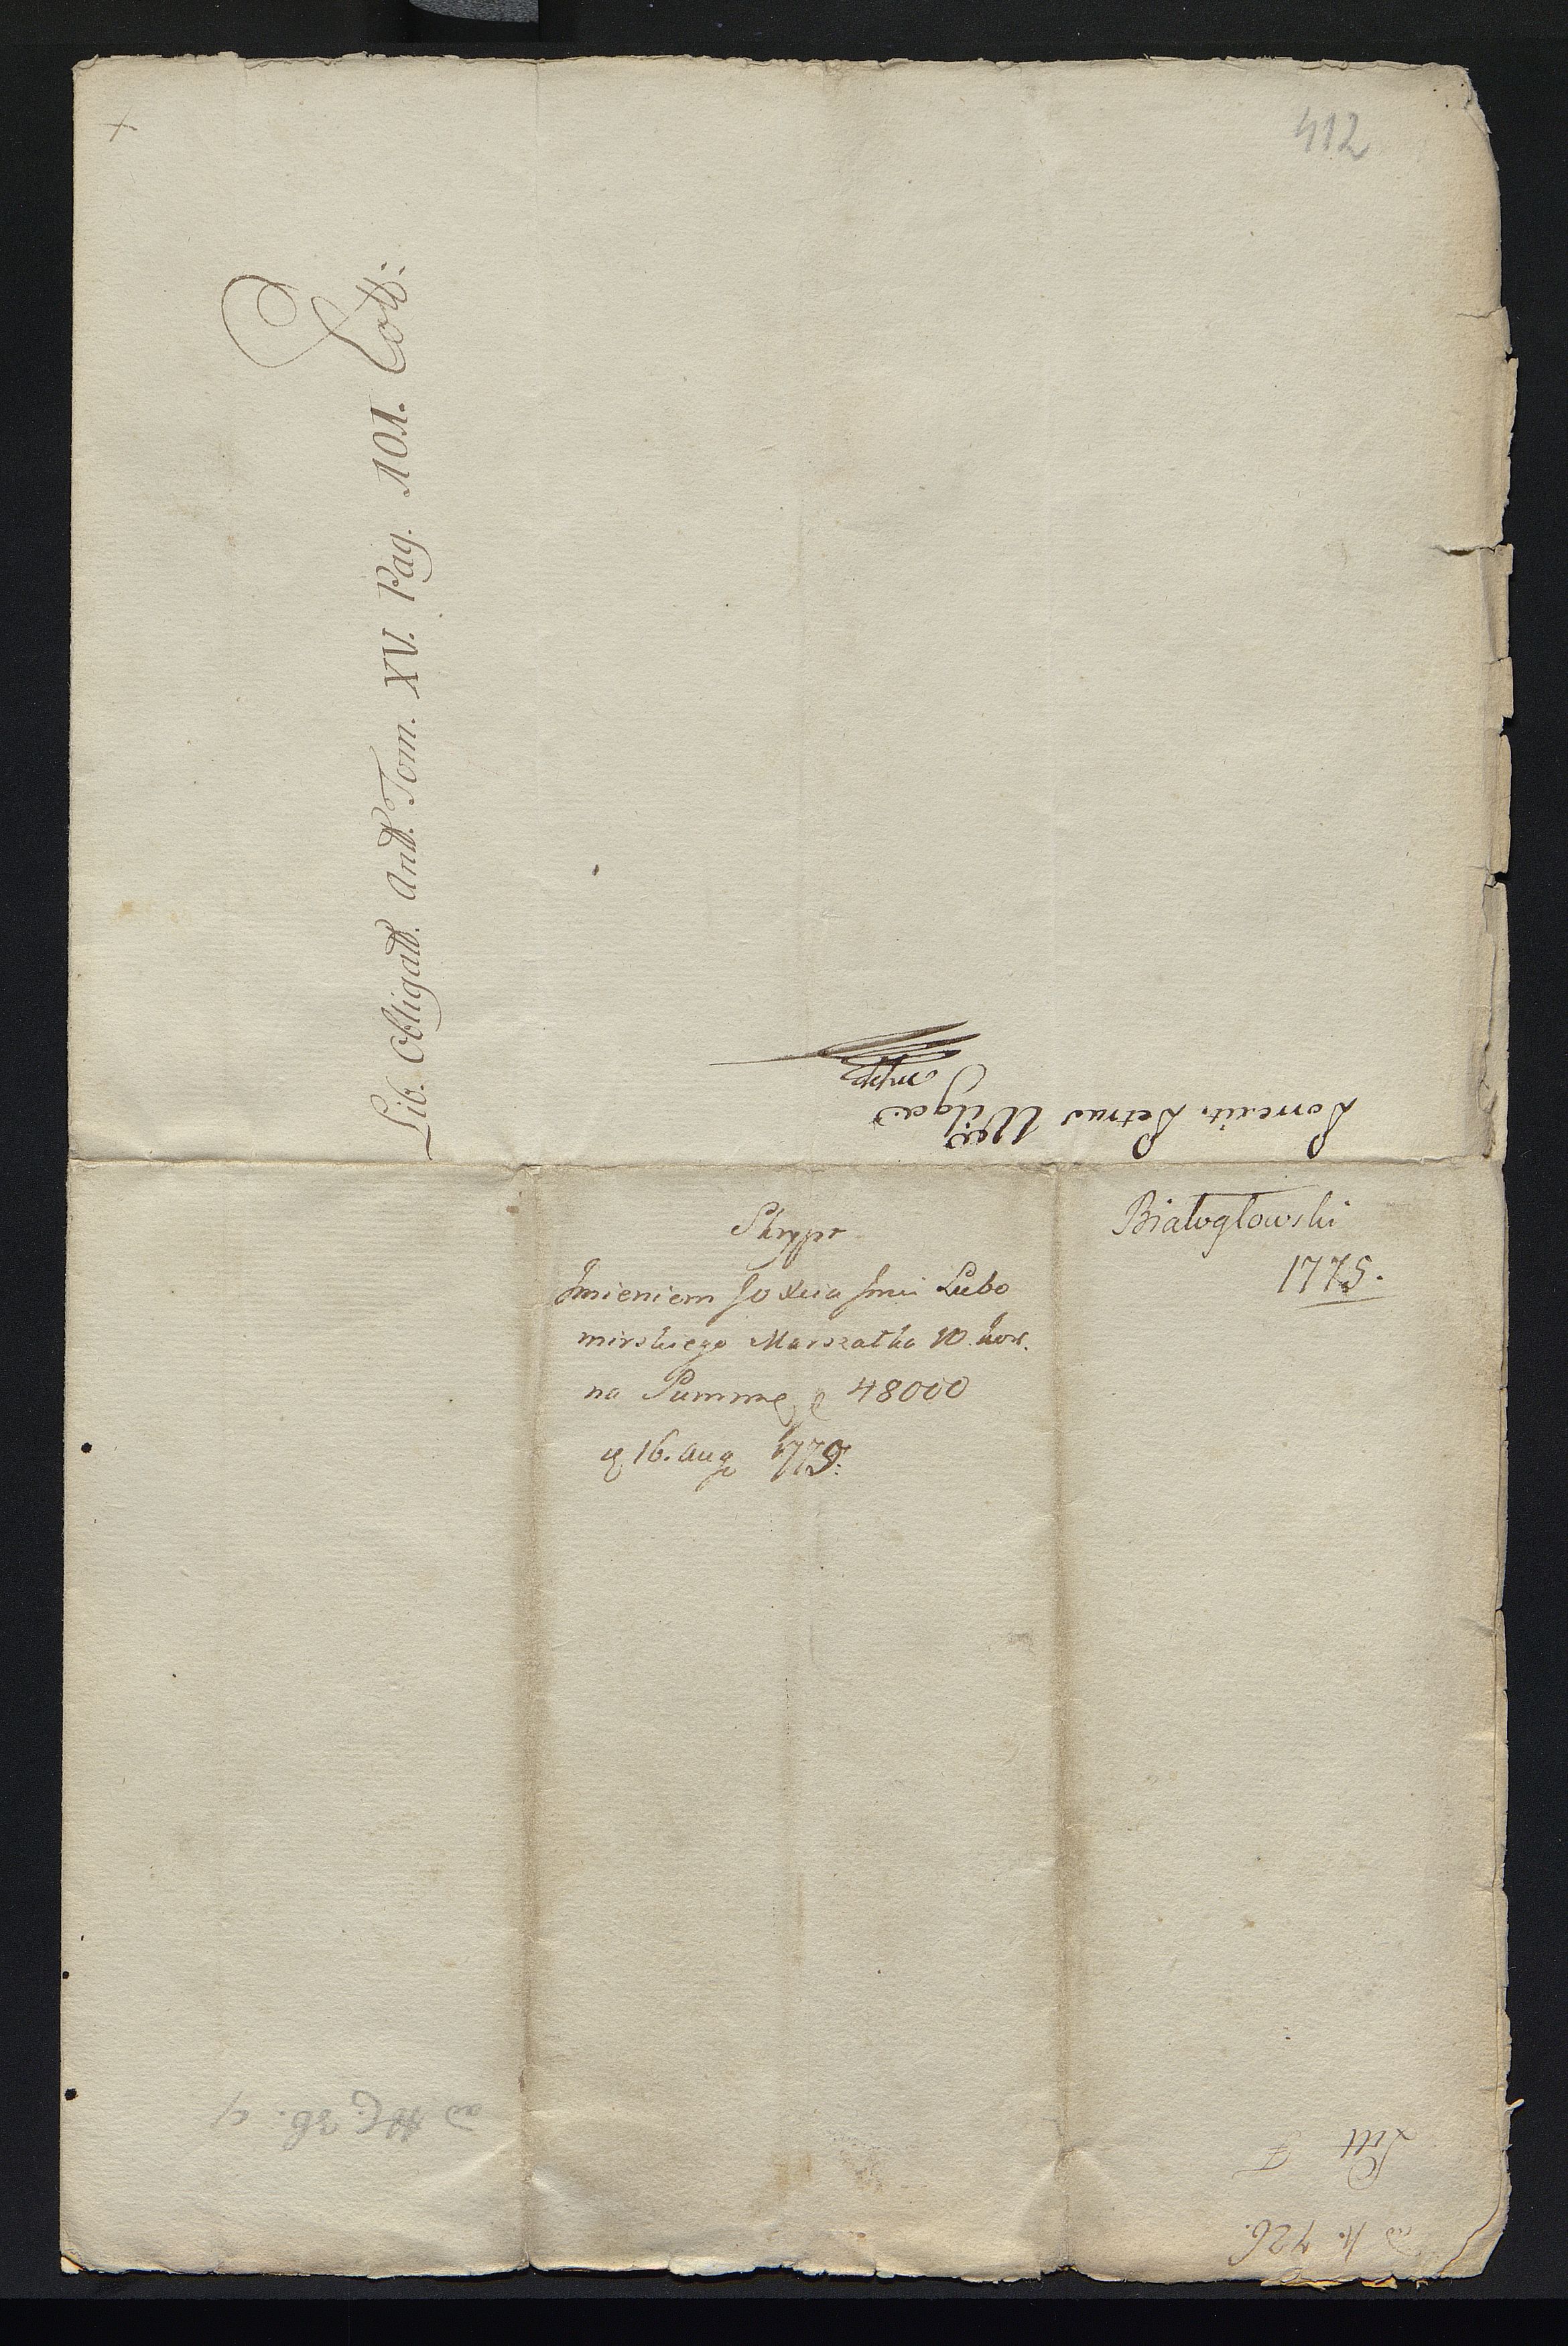 412
Lib. Obligatt. Antt. Tom. XV. Pag. 101. Cott:
Correxit. Petrus Wilga
mpp
Białogłowski
1775.
Skrypt
Imieniem Jo Xcia Jmci Lubo
mirskiego Marszałka W. kor.
na Summę 48000
16. Aug 1775:
Litt F
ad N. 726.